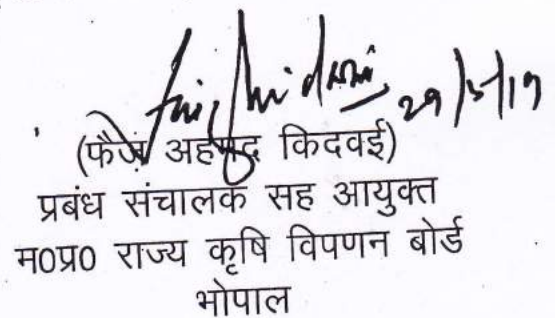 29/5/19
(फैज अहमद किदवई)
प्रबंध संचालक सह आयुक्त
म०प्र० राज्य कृषि विपणन बोर्ड
भोपाल